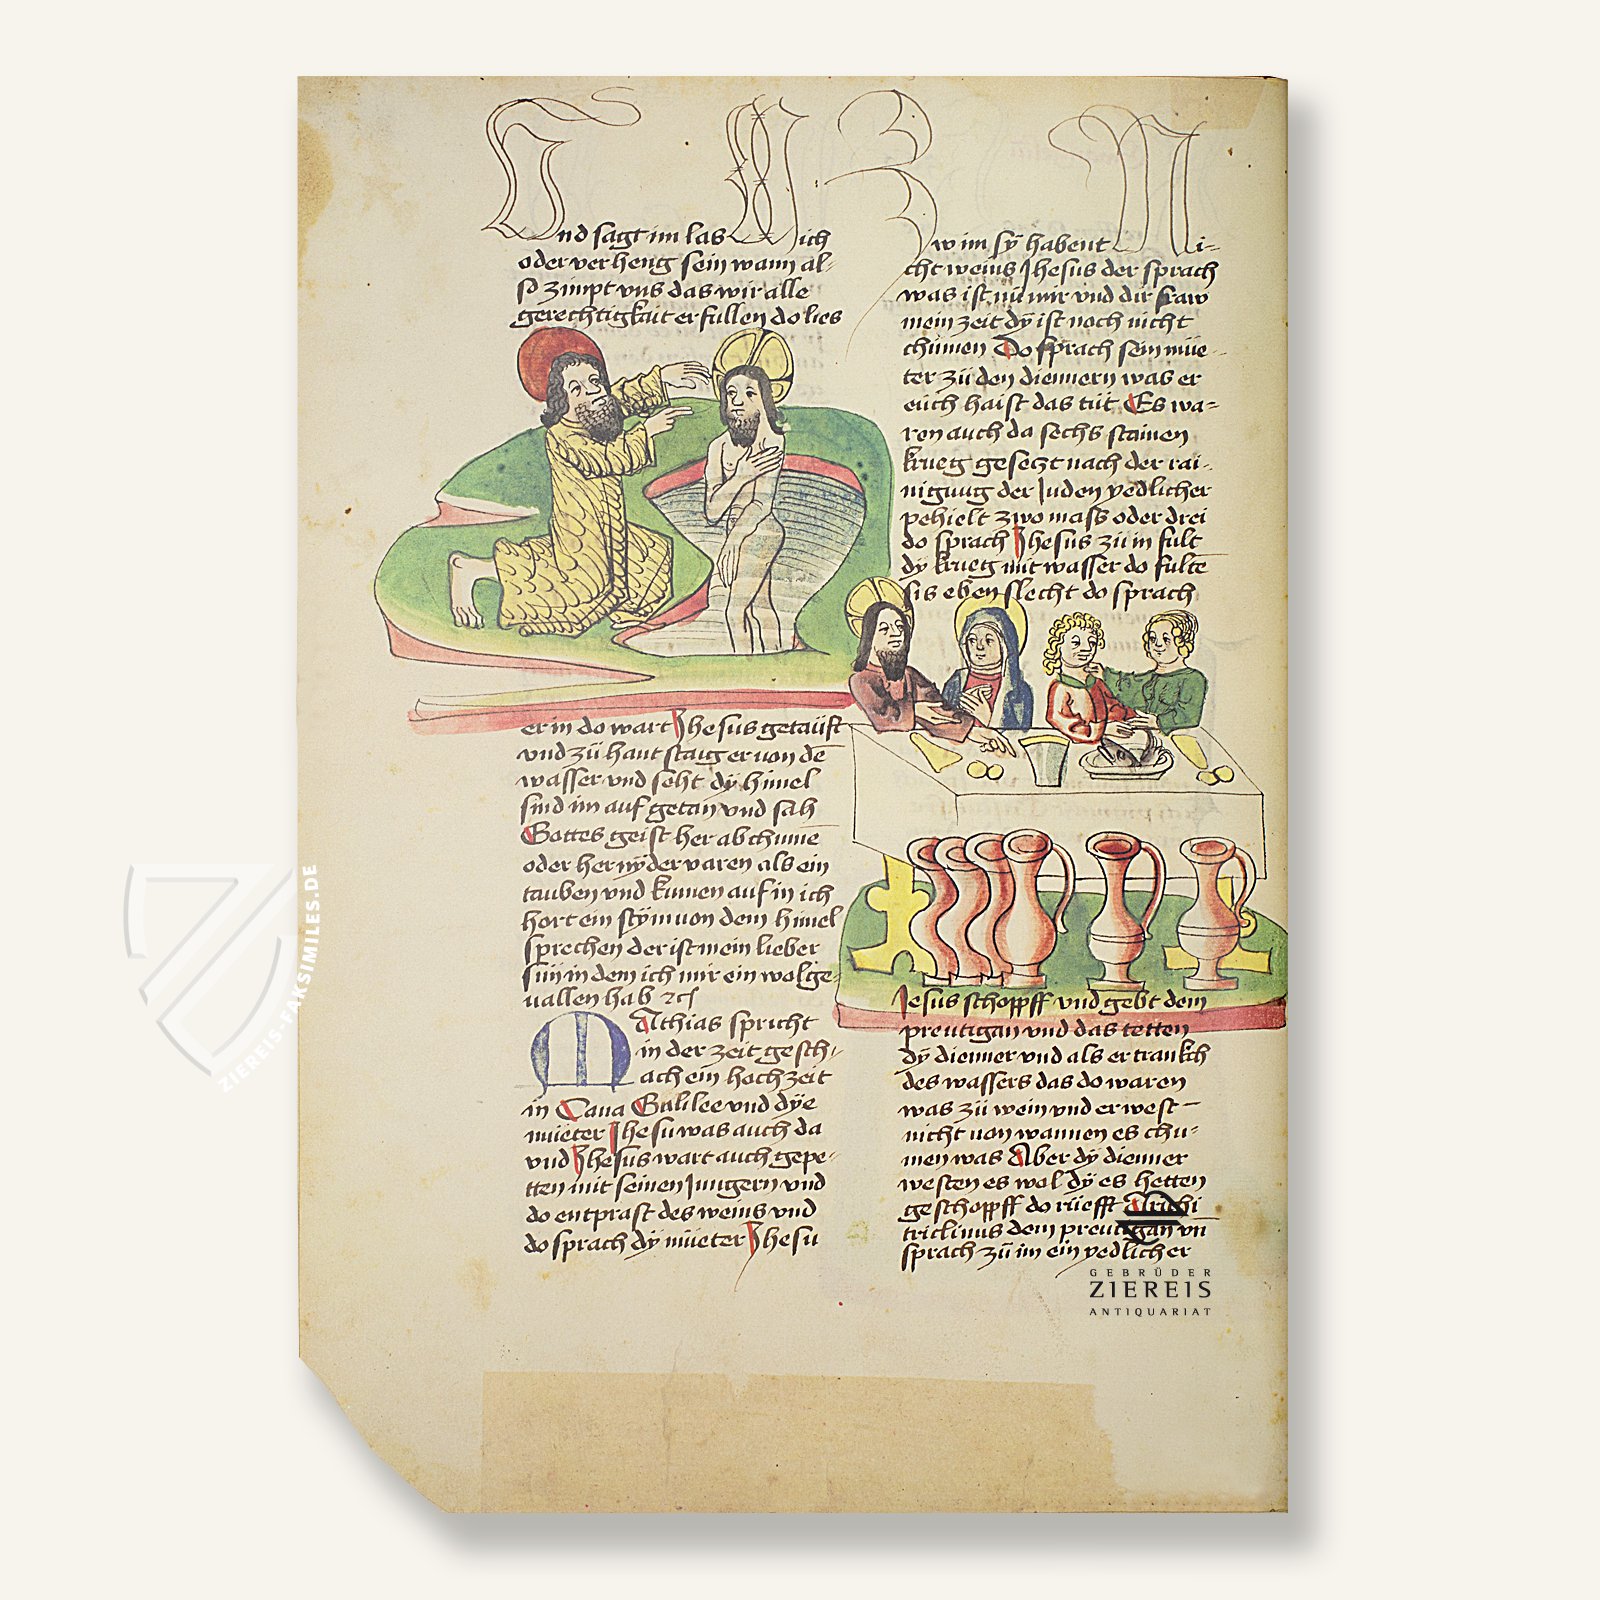 Und sagt im las Mich
oder verheng sein wann al-
so zimpt vns das wir alle
gerechtigkait erfullen do lies
er in do wart Jhesus getaüft
vnd zü hant staig er von dē
wasser vnd seht dÿ himel
sind im auf getan vnd sah
Gottes geist her ab chumē
oder her nÿder varen als ein
tauben vnd kumen auf in ich
hort ein stÿm von dem himel
sprechen der ist mein lieber
sun in dem ich mir ein wolge-
uallen hab
Mathias spricht
in der zeit gesch-
ach ein hochzeit
in Cana Galilee vnd dÿe
müeter Jhesu was auch da
vnd Jhesus wart auch gepe-
tten mit seinen Jungern vnd
do entprast des weins vnd
do sprach dÿ müeter Jhesu
Zw im sÿ habent Ni-
cht weins Jhesus der sprach
was ist nü mir vnd dir fraw
mein zeit dÿ ist noch nicht
chümen Do sprach sein müe-
ter zü den diennern was er
eüch haist das tüt Es wa-
ren auch da sechs stainen
krueg geseczt nach der rai-
nigung der Juden yedlicher
pehielt zwo mass oder drei
do sprach Jhesus zü in fult
dÿ krueg mit wasser do fultē
sis eben slecht do sprach
Jesus schopff vnd gebt dem
preutigan vnd das tetten
dÿ dienner vnd als er trankch
des wassers das do waren
was zü wein vnd er west
nicht von wannen es chu-
men was Aber dÿ dienner
westen es wol dÿ es hetten
geschopff do rüefft Archi
triclinus dem preutigan vn̄
sprach zü im ein yedlicher
ZIEREIS-FAKSIMILES.DE
GEBRÜDER
ZIEREIS
ANTIQUARIAT